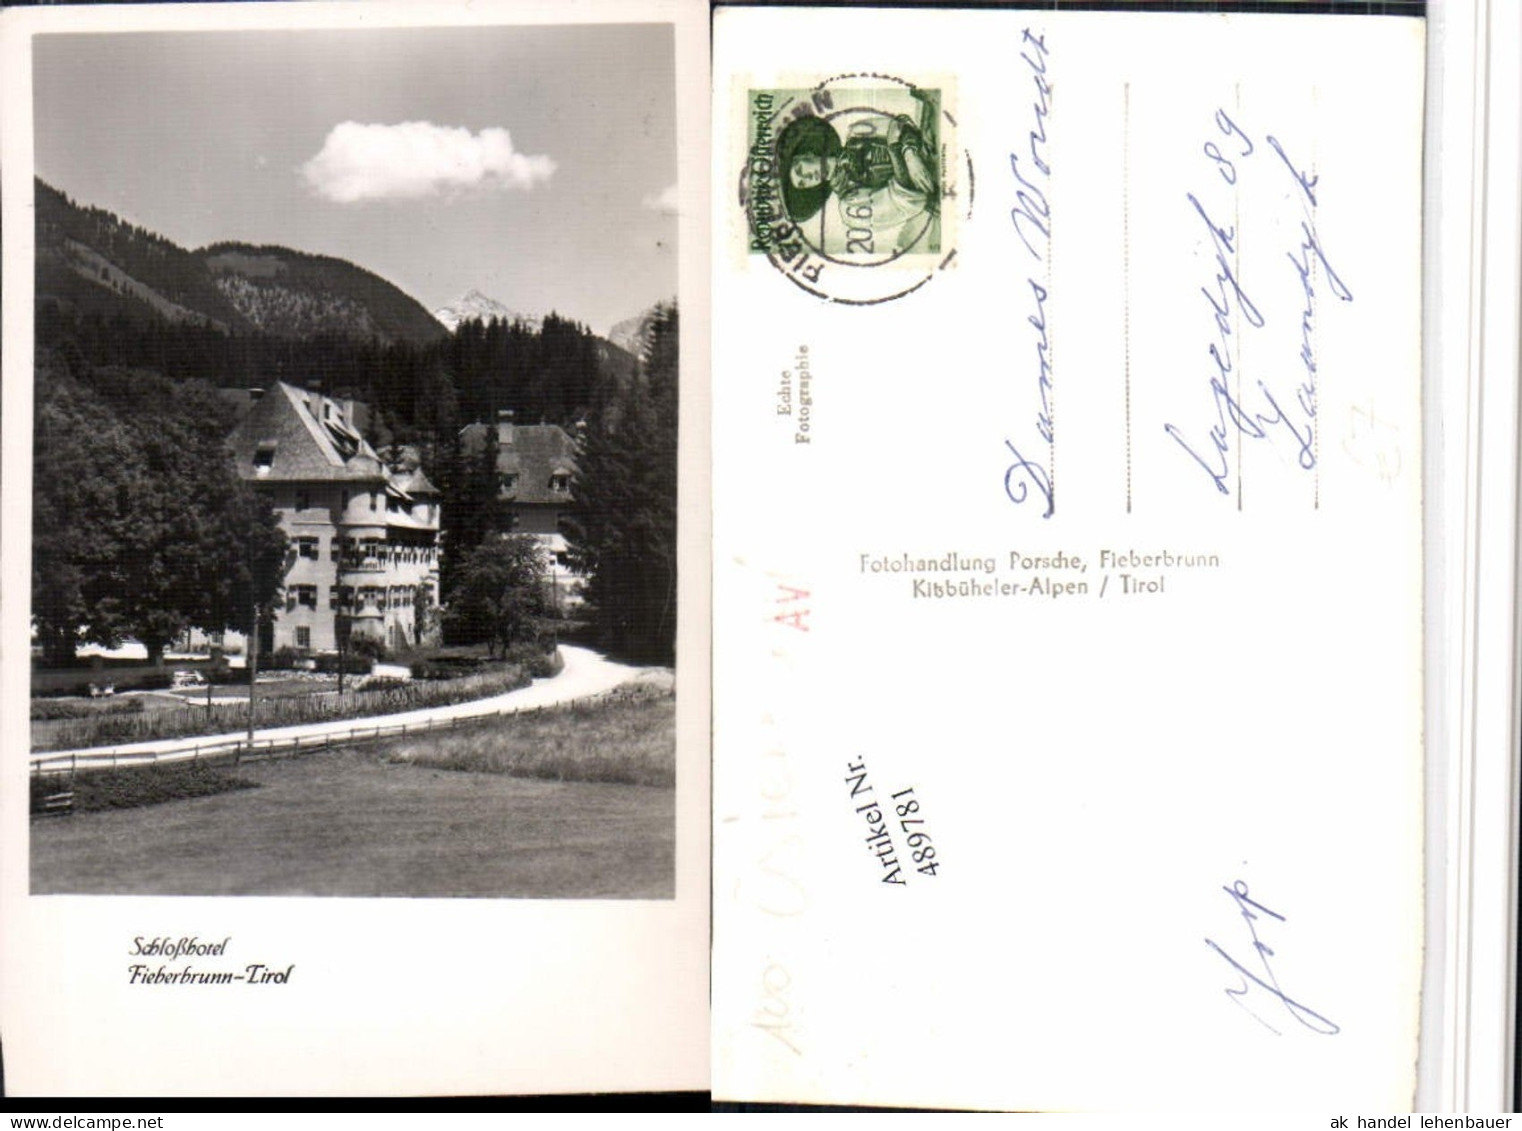 Schloßhotel
Fieberbrunn-Tirol
Republik Österreich
FIEBERBRUNN
20.6.
Echte
Fotographie
Dames Wondt
89
Zaandijk
Fotohandlung Porsche, Fieberbrunn
Kitzbüheler-Alpen / Tirol
AV
Artikel Nr.
489781
ak handel lehenbauer